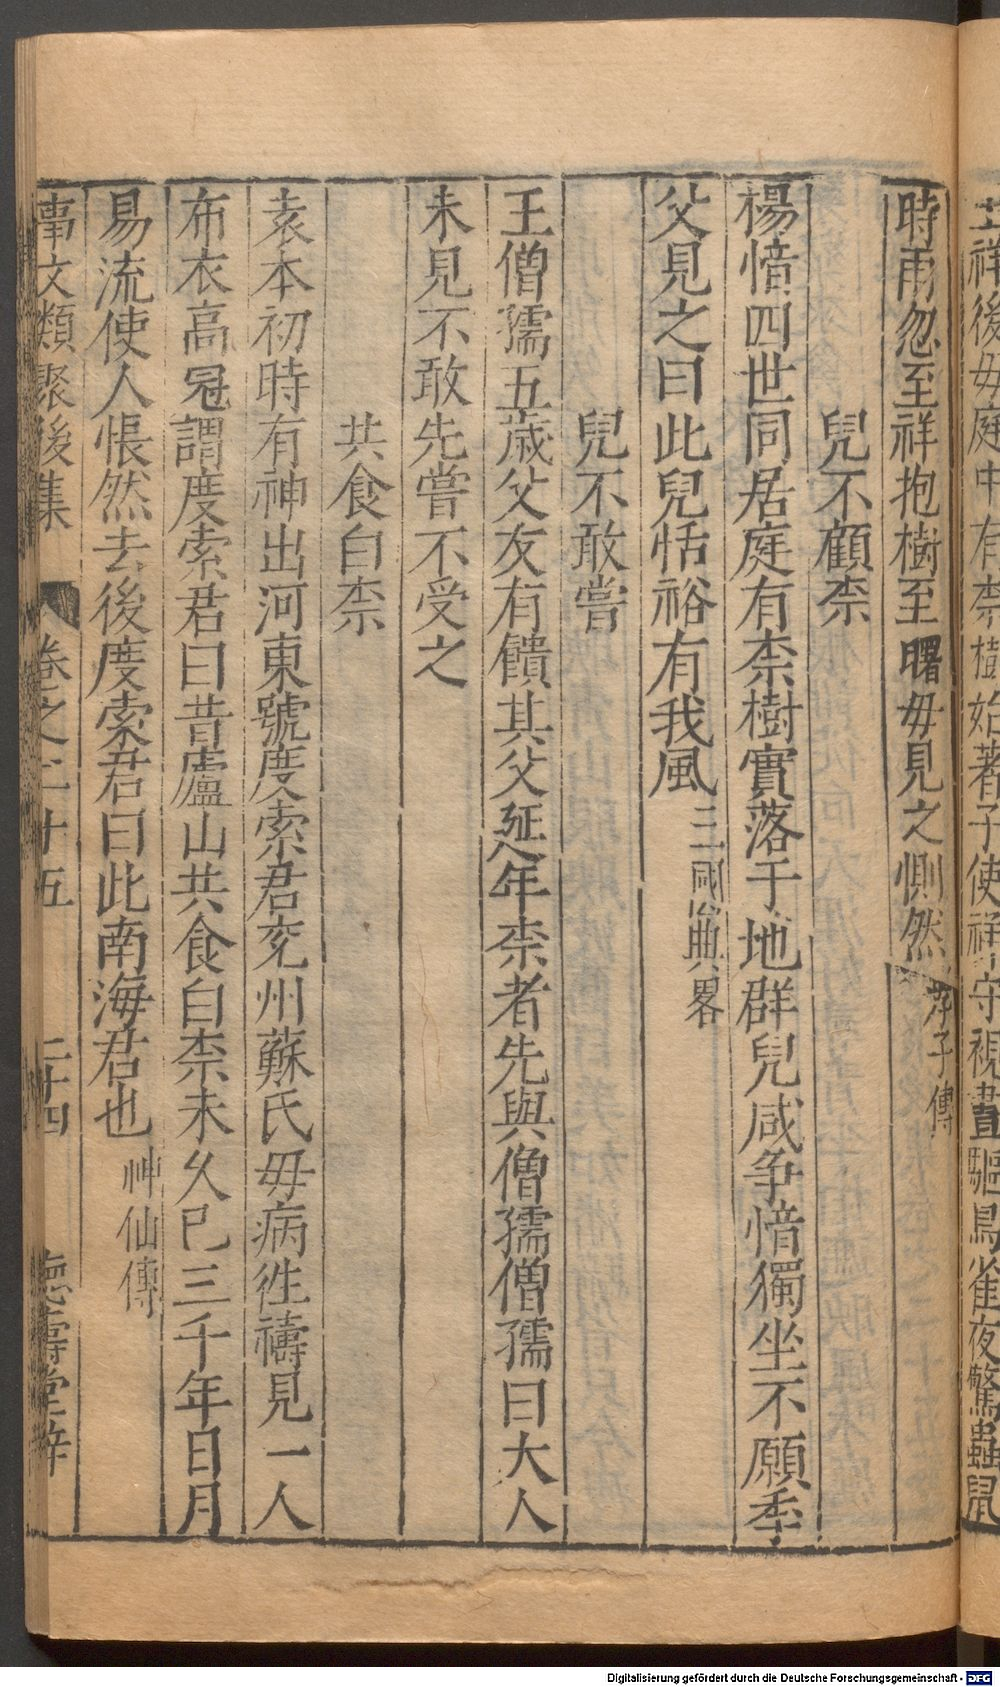 王祥後毋庭中有柰樹始著子使祥守視晝驅鳥雀夜驚蟲鼠
時雨忽至祥抱樹至曙毋見之惻然 孝子傳
兒不顧柰
楊愔四世同居庭有柰樹實落于地群兒咸争愔獨坐不願季
父見之曰此兒恬裕有我風 三國典畧
兒不敢嘗
王僧孺五歲父友有饋其父延年柰者先與僧孺僧孺曰大人
未見不敢先嘗不受之
共食白柰
袁本初時有神出河東號度索君兖州蘇氏毋病徃禱見一人
布衣高冠謂度索君曰昔廬山共食白柰未乆已三千年日月
易流使人悵然去後度索君曰此南海君也 神仙傳
事文類聚後集 卷之二十五 二十四 德壽堂梓
Digitalisierung gefördert durch die Deutsche Forschungsgemeinschaft - DFG